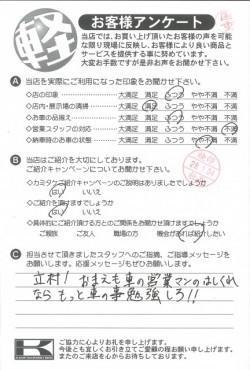 軽
お客様アンケート
当店では、お買い上げ頂いたお客様の声を可能
な限り現場に反映し、お客様により良い商品と
サービスを提供する事に努めています。
大変お手数ですが是非お声をお聞かせ下さい。
A 当店を実際にご利用になった印象をお聞かせ下さい。
◇店の印象 大満足 満足 ふつう やや不満 不満
◇店内・展示場の清掃 大満足 満足 ふつう やや不満 不満
◇お車の品揃え 大満足 満足 ふつう やや不満 不満
◇営業スタッフの対応 大満足 満足 ふつう やや不満 不満
◇納車時のお車の状態 大満足 満足 ふつう やや不満 不満
B 当店はご紹介を大切にしております。
ご紹介キャンペーンについてお聞かせ下さい。
◇カミタケご紹介キャンペーンのご説明はありましたでしょうか
はい いいえ
はい いいえ
◇具体的にご紹介頂ける方とのご関係をお聞かせ頂けますでしょうか
ご親族 ご友人 職場の方 機会があれば紹介したい
C 担当させて頂きましたスタッフへのご指摘、ご指導メッセージを
お願いします。応援メッセージもぜひお願いします。
立村！おまえも車の営業マンのはしくれ
なら もっと車の事勉強しろ!!
K
ご協力に心よりお礼を申し上げます。
今後とも宜しくお引き立てご愛顧の程お願い申し上げます。
またのご来店を心からお待ちしております。